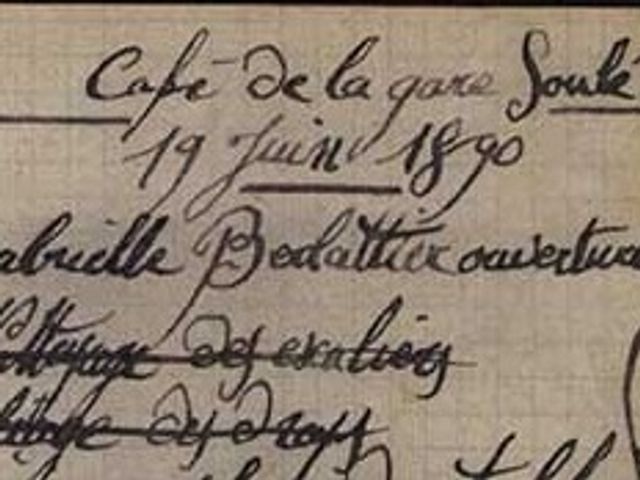 Café de la gare Soulé
19 Juin 1890
abrielle Berlattier ouvertur
ttoyage des escaliers
des draps